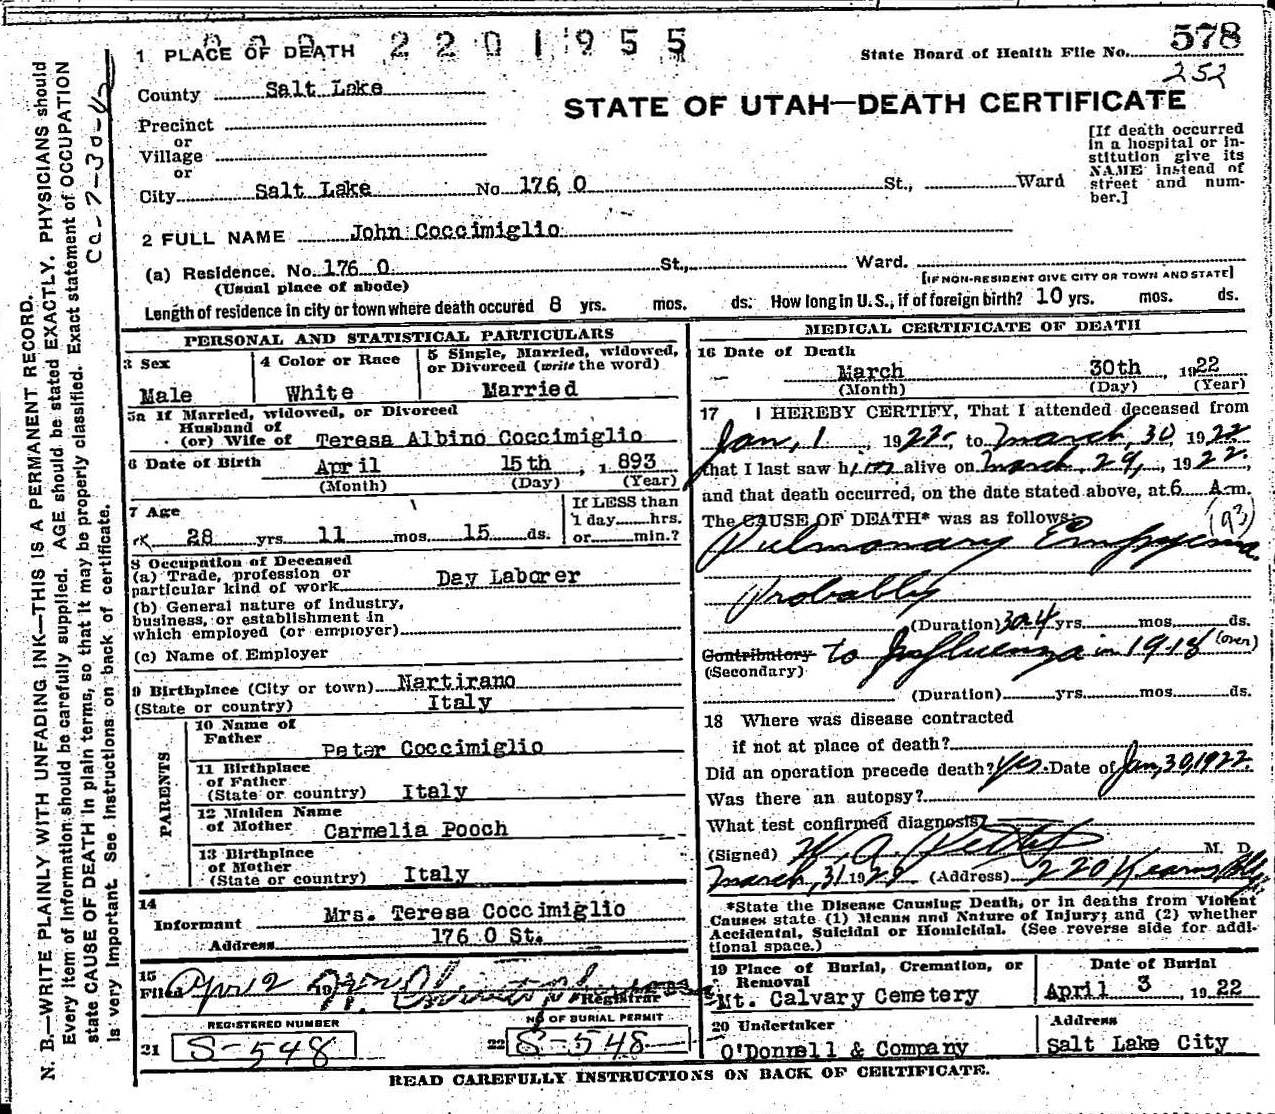 2201955
1 PLACE OF DEATH
State Board of Health File No. 578
252
County Salt Lake
STATE OF UTAH—DEATH CERTIFICATE
Precinct
or
Village
or
City Salt Lake No 176 O St., Ward
[If death occurred
in a hospital or in-
stitution give its
NAME instead of
street and num-
ber.]
2 FULL NAME John Coccimiglio
(a) Residence. No. 176 O St., Ward.
(Usual place of abode)
[IF NON-RESIDENT GIVE CITY OR TOWN AND STATE]
Length of residence in city or town where death occured 8 yrs. mos. ds. How long in U.S., if of foreign birth? 10 yrs. mos. ds.
PERSONAL AND STATISTICAL PARTICULARS
3 Sex
Male
4 Color or Race
White
5 Single, Married, widowed,
or Divorced (write the word)
Married
5a If Married, widowed, or Divorced
Husband of
(or) Wife of Teresa Albino Coccimiglio
6 Date of Birth April 15th, 1893
(Month) (Day) (Year)
7 Age
28 yrs. 11 mos. 15 ds.
If LESS than
1 day hrs.
or min.?
8 Occupation of Deceased
(a) Trade, profession or
particular kind of work Day Laborer
(b) General nature of industry,
business, or establishment in
which employed (or employer)
(c) Name of Employer
9 Birthplace (City or town) Nartirano
(State or country) Italy
PARENTS
10 Name of
Father Peter Coccimiglio
11 Birthplace
of Father
(State or country) Italy
12 Maiden Name
of Mother Carmelia Pooch
13 Birthplace
of Mother
(State or country) Italy
14
Informant Mrs. Teresa Coccimiglio
Address 176 O St.
15
Filed Apr 2
Registrar
REGISTERED NUMBER
21 S-548
NO OF BURIAL PERMIT
22 S-548
MEDICAL CERTIFICATE OF DEATH
16 Date of Death
March 30th, 1922
(Month) (Day) (Year)
17 I HEREBY CERTIFY, That I attended deceased from
Jan, 1, 1922 to March, 30, 1922
that I last saw him alive on March, 29, 1922,
and that death occurred, on the date stated above, at 6 A.m.
The CAUSE OF DEATH* was as follows:
Pulmonary Empyema
Probably
(Duration) 3 or 4 yrs. mos. ds.
Contributory to Influenza in 1918 (over)
(Secondary)
(Duration) yrs. mos. ds.
18 Where was disease contracted
if not at place of death?
Did an operation precede death? Yes. Date of Jan, 30, 1922.
Was there an autopsy?
What test confirmed diagnosis?
(Signed) W. A. M. D
March, 31 1922 (Address) 220 Kearns Bldg
*State the Disease Causing Death, or in deaths from Violent
Causes state (1) Means and Nature of Injury; and (2) whether
Accidental, Suicidal or Homicidal. (See reverse side for addi-
tional space.)
19 Place of Burial, Cremation, or
Removal
Mt. Calvary Cemetery
Date of Burial
April 3, 1922
20 Undertaker
O'Donnell & Company
Address
Salt Lake City
READ CAREFULLY INSTRUCTIONS ON BACK OF CERTIFICATE.
N. B.—WRITE PLAINLY WITH UNFADING INK—THIS IS A PERMANENT RECORD.
Every item of information should be carefully supplied. AGE should be stated EXACTLY. PHYSICIANS should
state CAUSE OF DEATH in plain terms, so that it may be properly classified. Exact statement of OCCUPATION
is very important. See instructions on back of certificate.